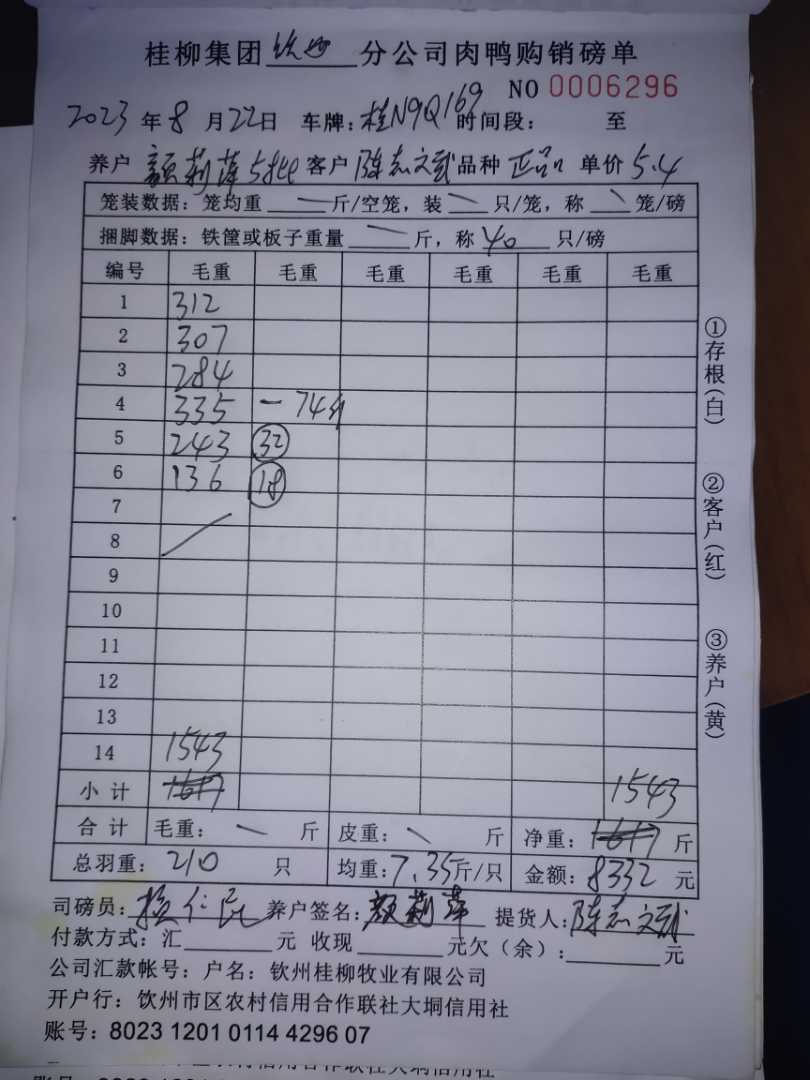 桂柳集团 钦州 分公司肉鸭购销磅单
NO 0006296
2023 年 8 月 22 日 车牌: 桂N9Q169 时间段: 至
养户 颜莉萍 客户 陈志文武 品种 正品 单价 5.4
笼装数据: 笼均重 一 斤/空笼, 装 只/笼, 称 笼/磅
捆脚数据: 铁筐或板子重量 斤, 称 40 只/磅
编号 毛重 毛重 毛重 毛重 毛重 毛重
1 312
2 307
3 284
4 335 - 74斤
5 243 32
6 136 18
7
8
9
10
11
12
13
14 1543
小计 1617 1543
合计 毛重: 斤 皮重: 斤 净重: 1617 斤
总羽重: 210 只 均重: 7.35 斤/只 金额: 8332 元
司磅员: 养户签名: 颜莉萍 提货人: 陈志文武
付款方式: 汇 元 收现 元欠(余): 元
公司汇款帐号: 户名: 钦州桂柳牧业有限公司
开户行: 饮州市区农村信用合作联社大垌信用社
账号: 8023 1201 0114 4296 07
①存根(白)
②客户(红)
③养户(黄)